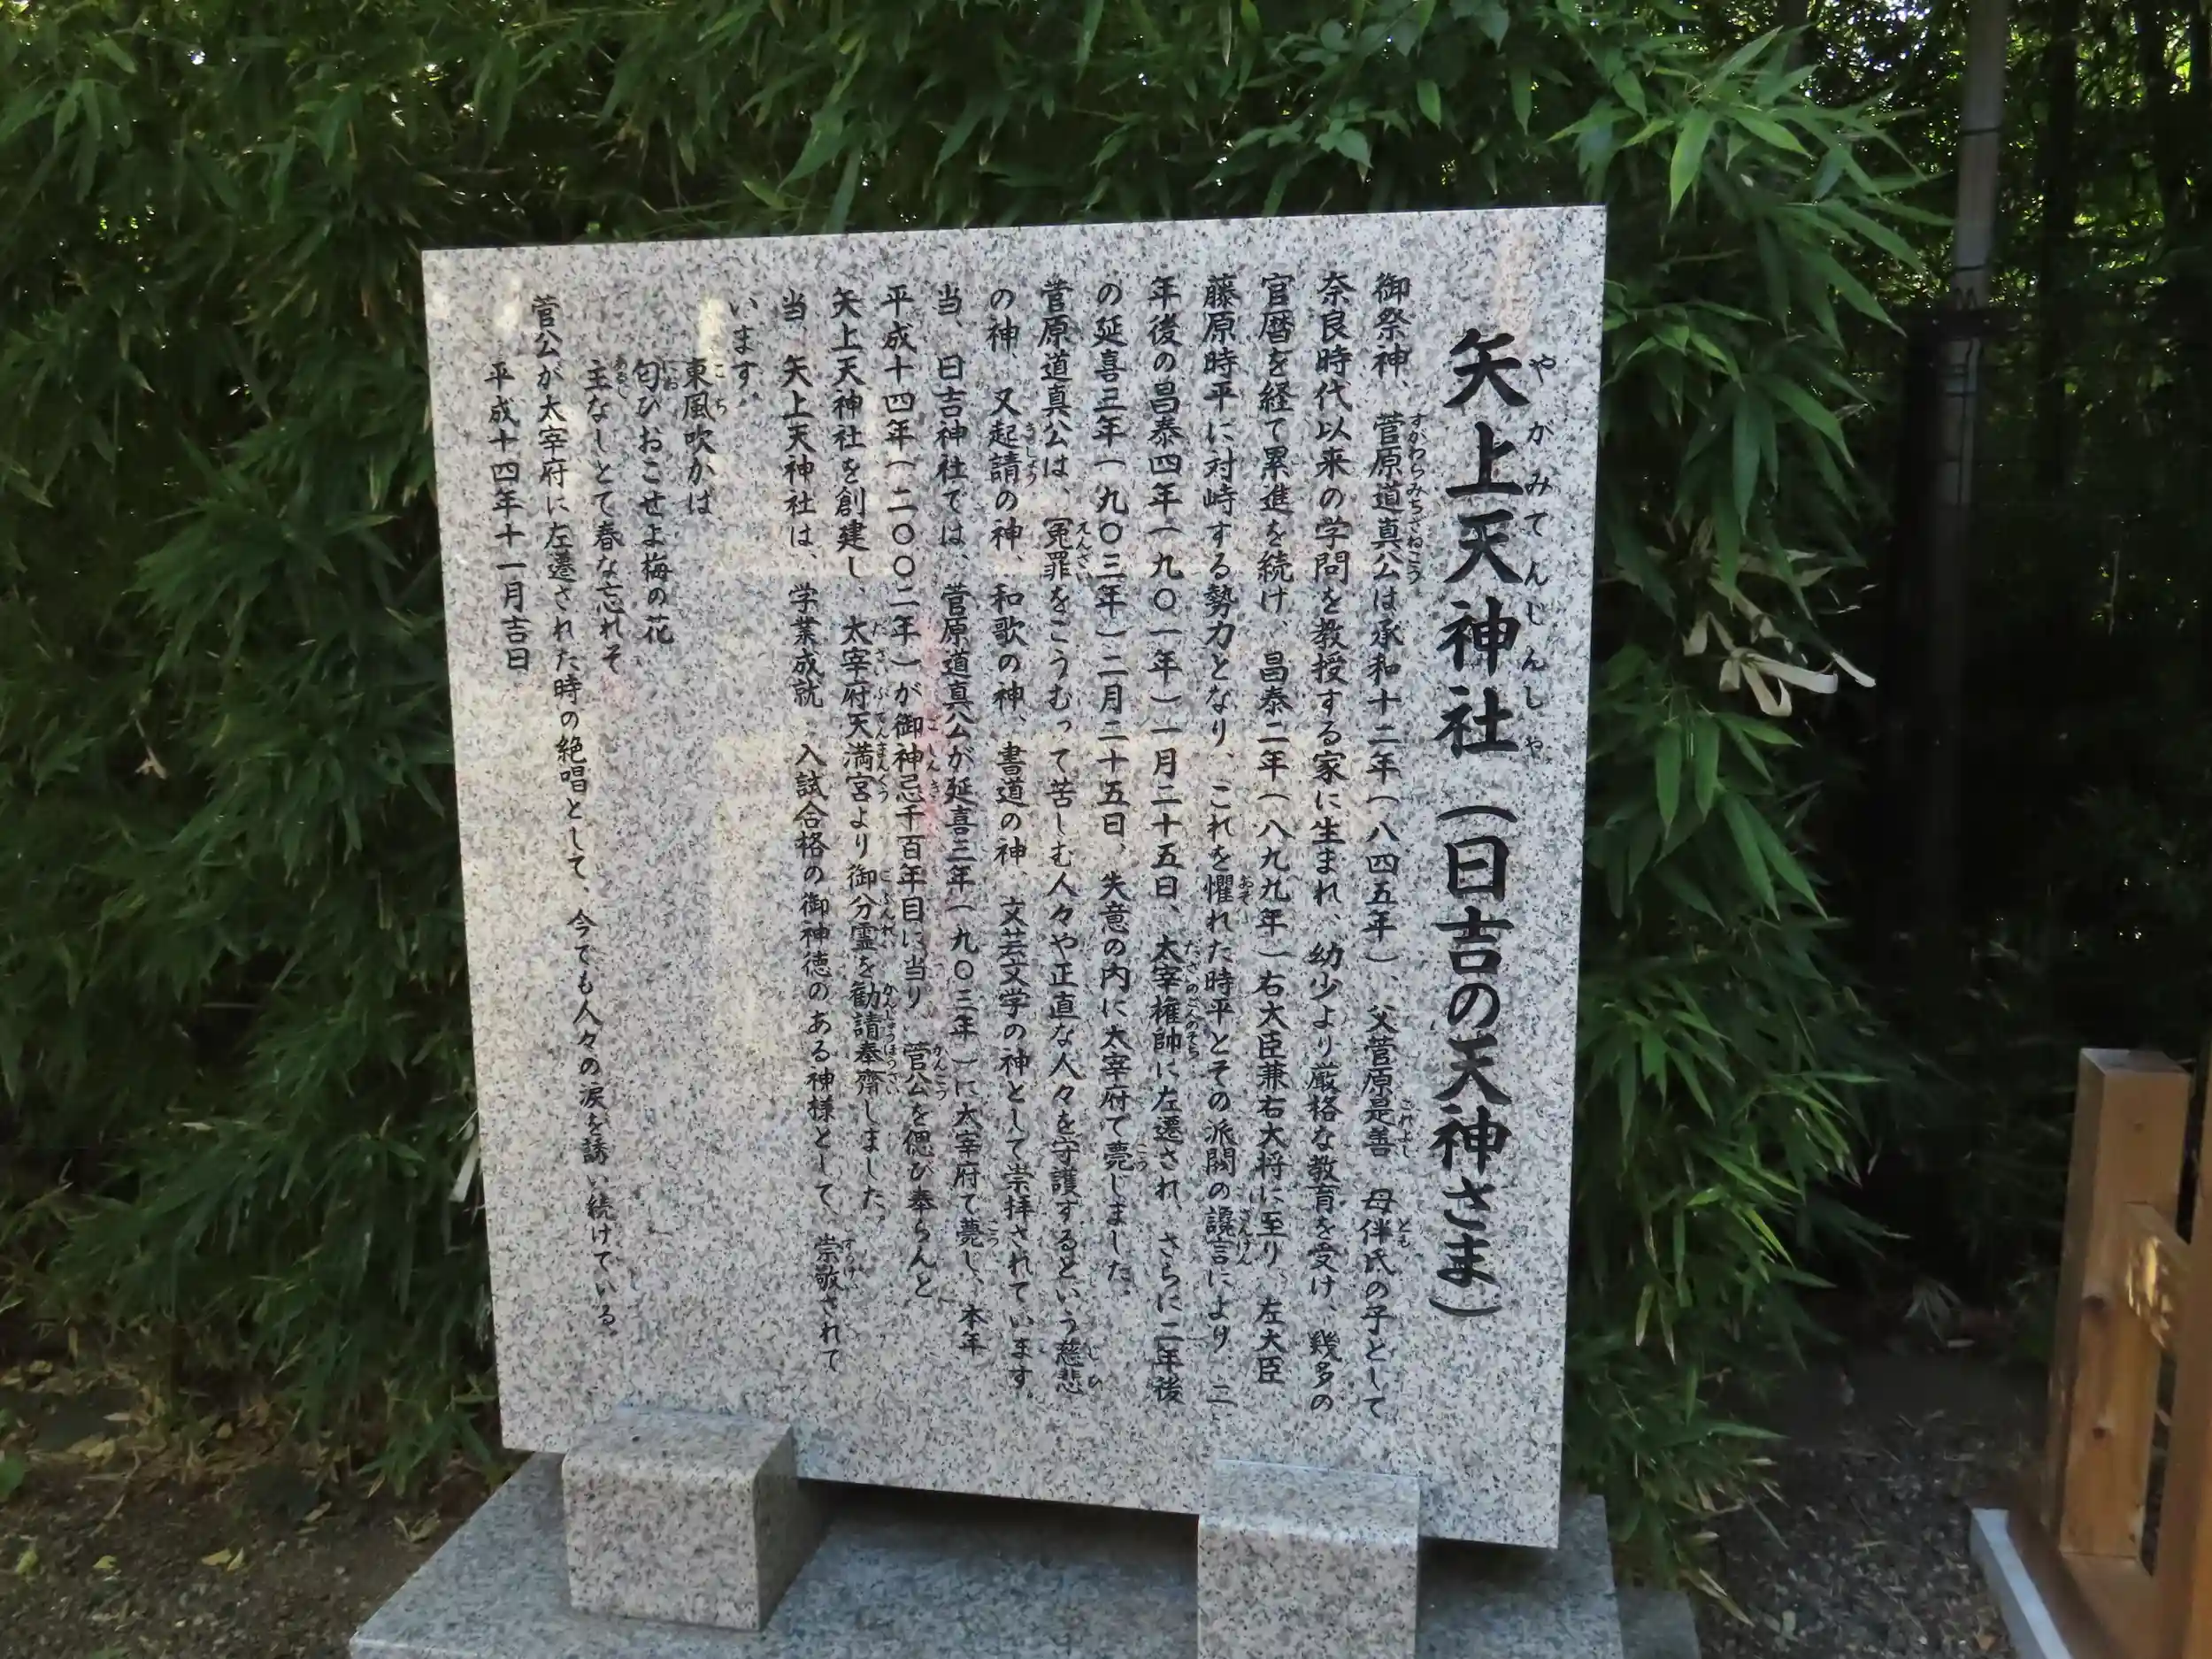 矢上天神社（日吉の天神さま）
やがみてんじんしゃ
御祭神、菅原道真公は承和十二年（八四五年）、父菅原是善　母伴氏の子として
すがわらみちざねこう
これよし
とも
奈良時代以来の学問を教授する家に生まれ、幼少より厳格な教育を受け、幾多の
官暦を経て累進を続け、昌泰二年（八九九年）右大臣兼右大将に至り　左大臣
藤原時平に対峙する勢力となり、これを懼れた時平とその派閥の讒言により、二
おそ
ざんげん
年後の昌泰四年（九〇一年）一月二十五日、太宰権帥に左遷され、さらに二年後
だざいのごんのそち
の延喜三年（九〇三年）二月二十五日、失意の内に太宰府て薨じました。
こう
菅原道真公は、冤罪をこうむって苦しむ人々や正直な人々を守護するという慈悲
えんざい
じひ
の神、又起請の神、和歌の神、書道の神、文芸文学の神として崇拝されています。
きしょう
当、日吉神社では、菅原道真公が延喜三年（九〇三年）に太宰府て薨し、本年
こう
平成十四年（二〇〇二年）が御神忌千百年目に当り　菅公を偲び奉らんと
ごしんき
かんこう
矢上天神社を創建し、太宰府天満宮より御分霊を勧請奉齋しました。
だざいふてんまんぐう
ごぶんれい
かんじょうほうさい
当　矢上天神社は、学業成就　入試合格の御神徳のある神様として、崇敬されて
すうけい
います。
東風吹かは
こち
匂ひおこせよ梅の花
にお
主なしとて春な忘れそ
あるじ
菅公が太宰府に左遷された時の絶唱として、今ても人々の涙を誘い続けている。
平成十四年十一月吉日